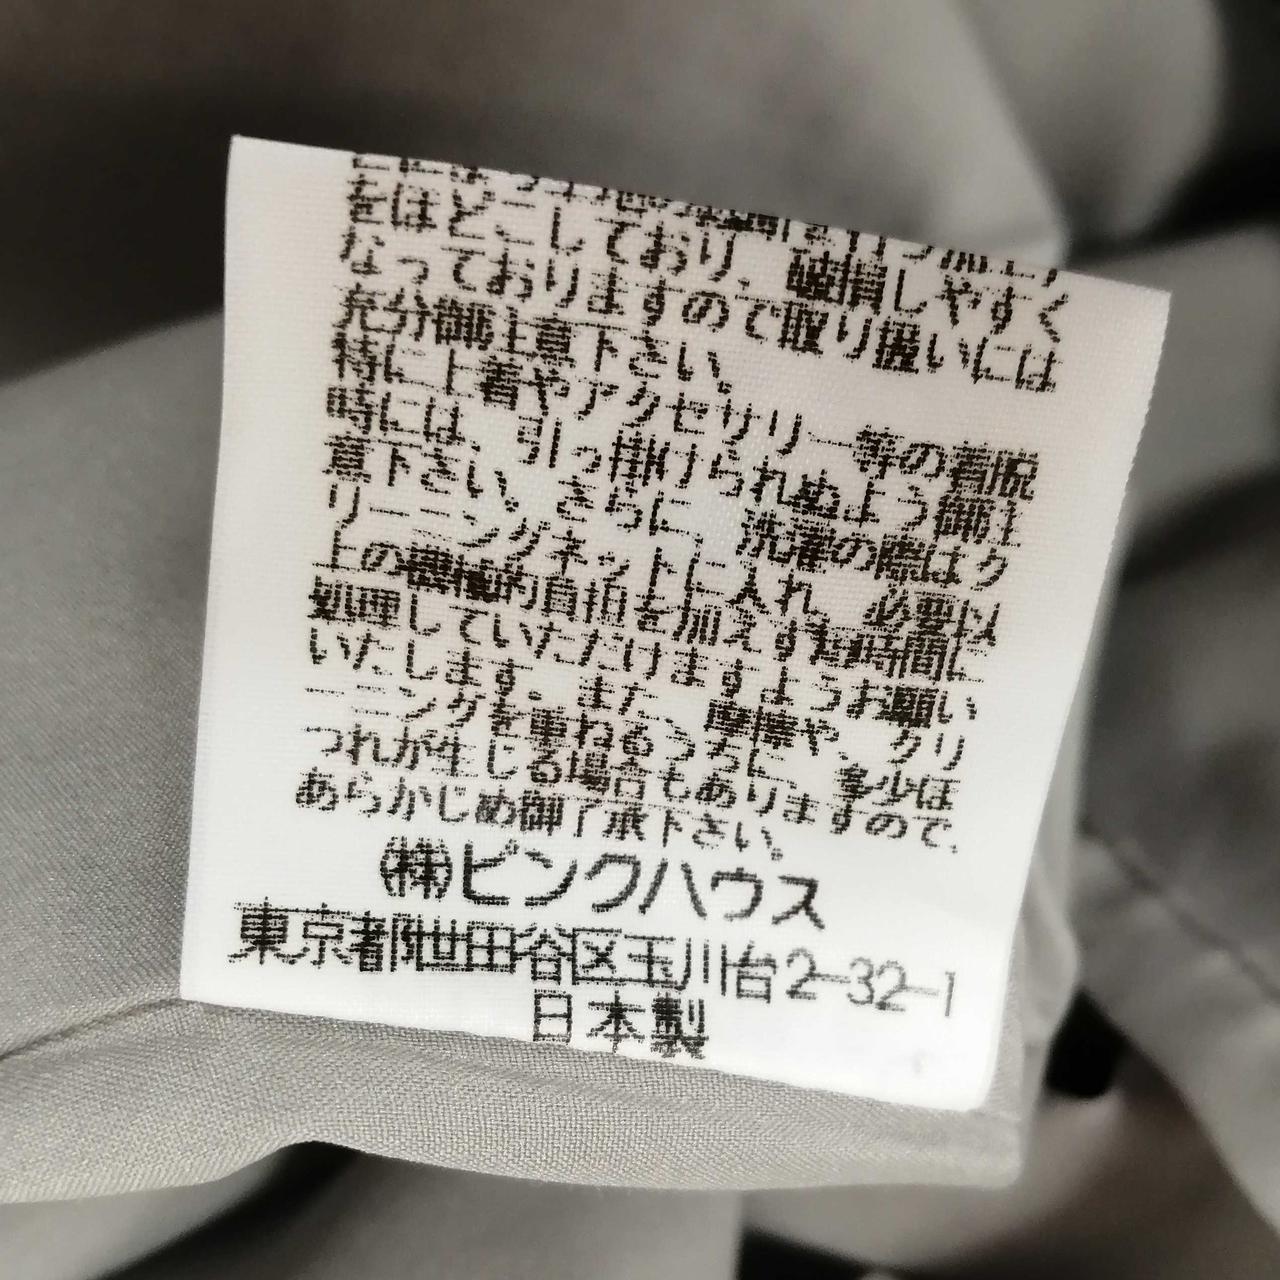 をほどこしており、破損しやすく
なっておりますので取り扱いには
充分御注意下さい。
特に上着やアクセサリー等の着脱
時には、引っ掛けられぬよう御注
意下さい。さらに、洗濯の際はク
リーニングネットに入れ、必要以
上の機械的負担を加えず短時間に
処理していただけますようお願い
いたします。また、摩擦や、クリ
ーニングを重ねるうちに、多少ほ
つれが生じる場合もありますので、
あらかじめ御了承下さい。
㈱ピンクハウス
東京都世田谷区玉川台2-32-1
日本製